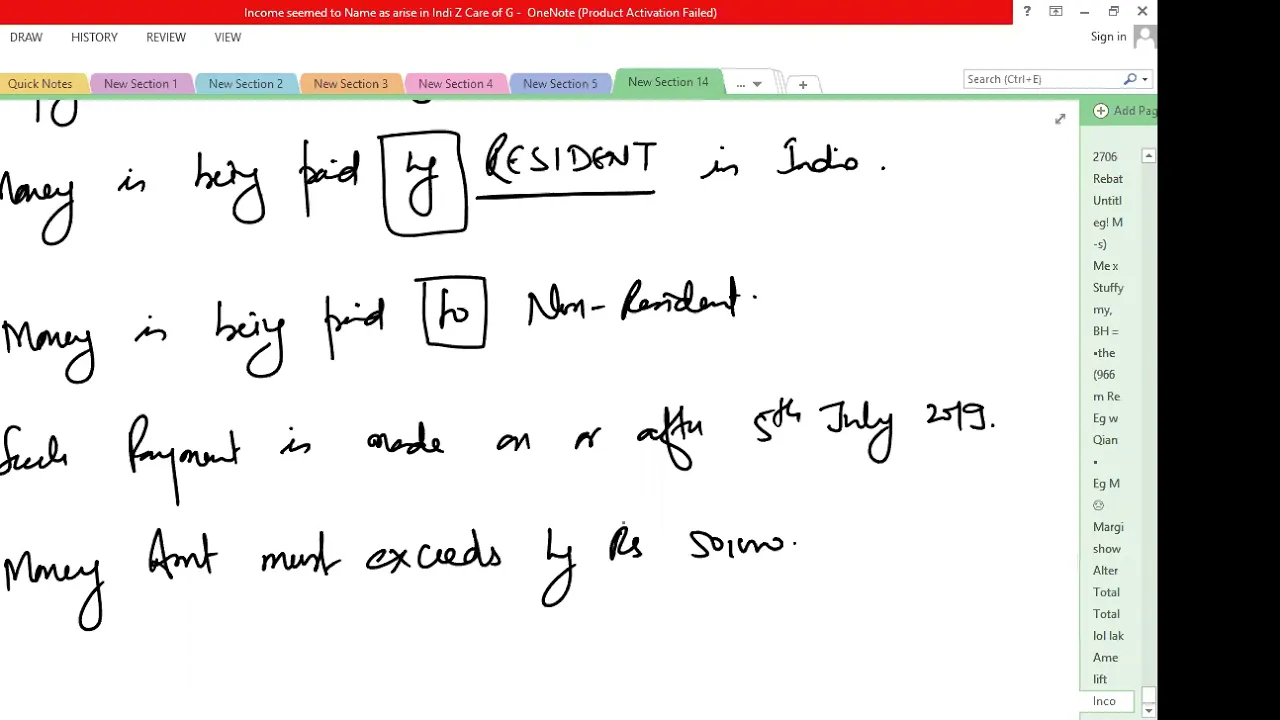 Income seemed to Name as arise in Indi Z Care of G - OneNote (Product Activation Failed)
?
DRAW HISTORY REVIEW VIEW
Sign in
Quick Notes New Section 1 New Section 2 New Section 3 New Section 4 New Section 5 New Section 14 ...
Search (Ctrl+E)
Add Pag
Money is being paid by RESIDENT in India.
Money is being paid to Non-Resident.
Such Payment is made on or after 5th July 2019.
Money Amt must exceeds by Rs
2706
Rebat
Untitl
eg! M
-s)
Me x
Stuffy
my,
BH =
•the
(966
m Re
Eg w
Qian
•
Eg M
☹
Margi
show
Alter
Total
Total
lol lak
Ame
lift
Inco